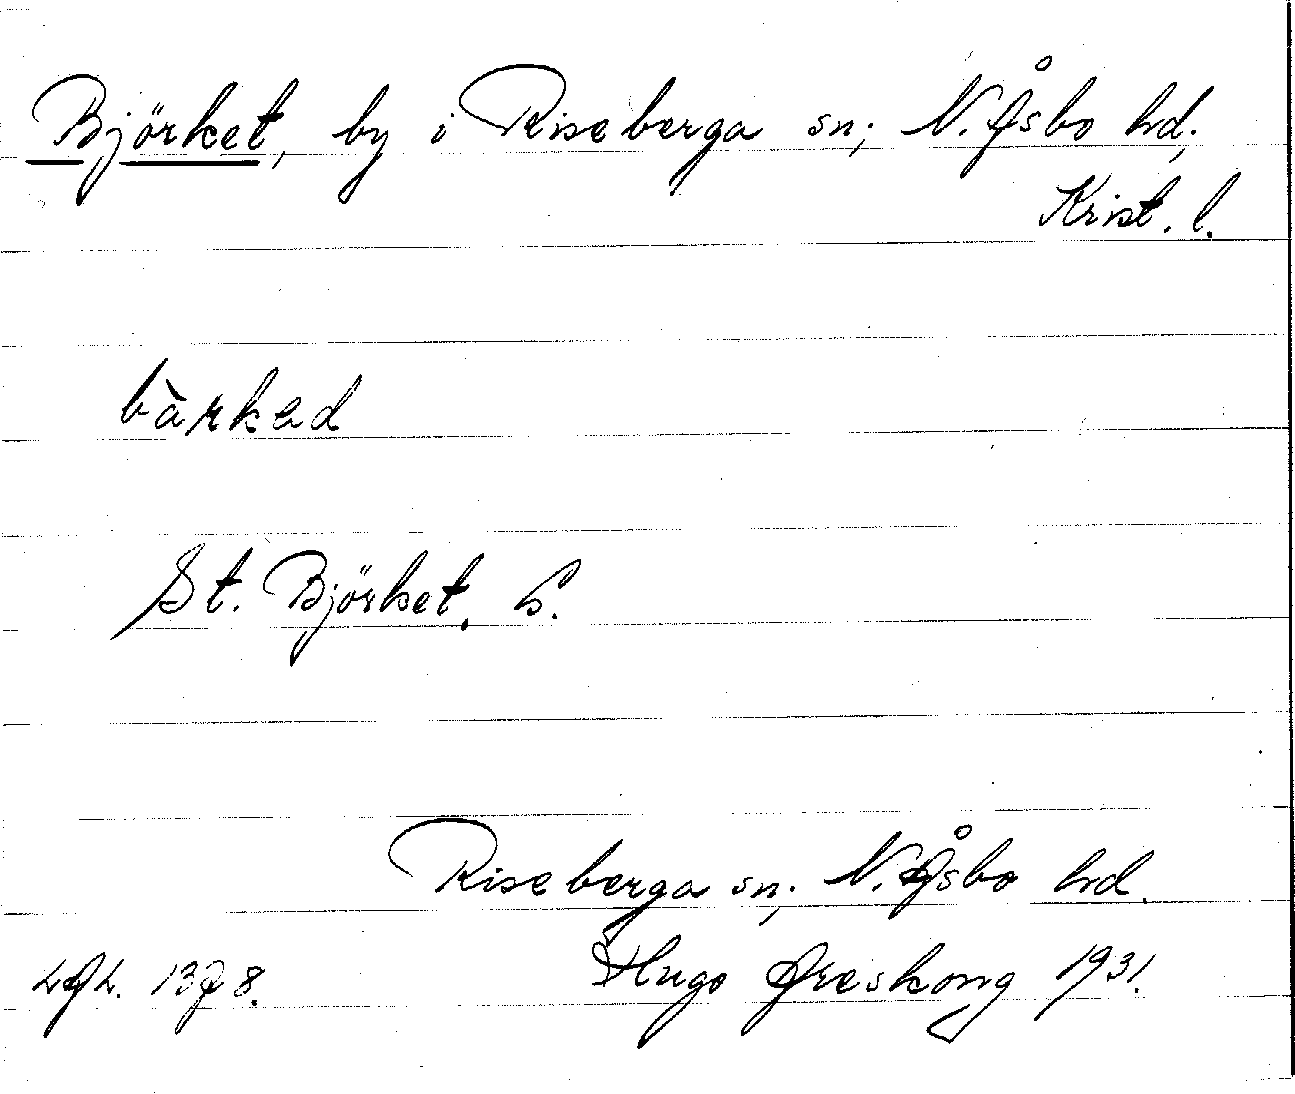 Björket, by i Riseberga sn; N. Åsbo hd;
Krist. l.
bàrkad
St. Björket. G.
Riseberga sn; N. Åsbo hd.
Hugo Areskoug 1931.
LAL. 1378.